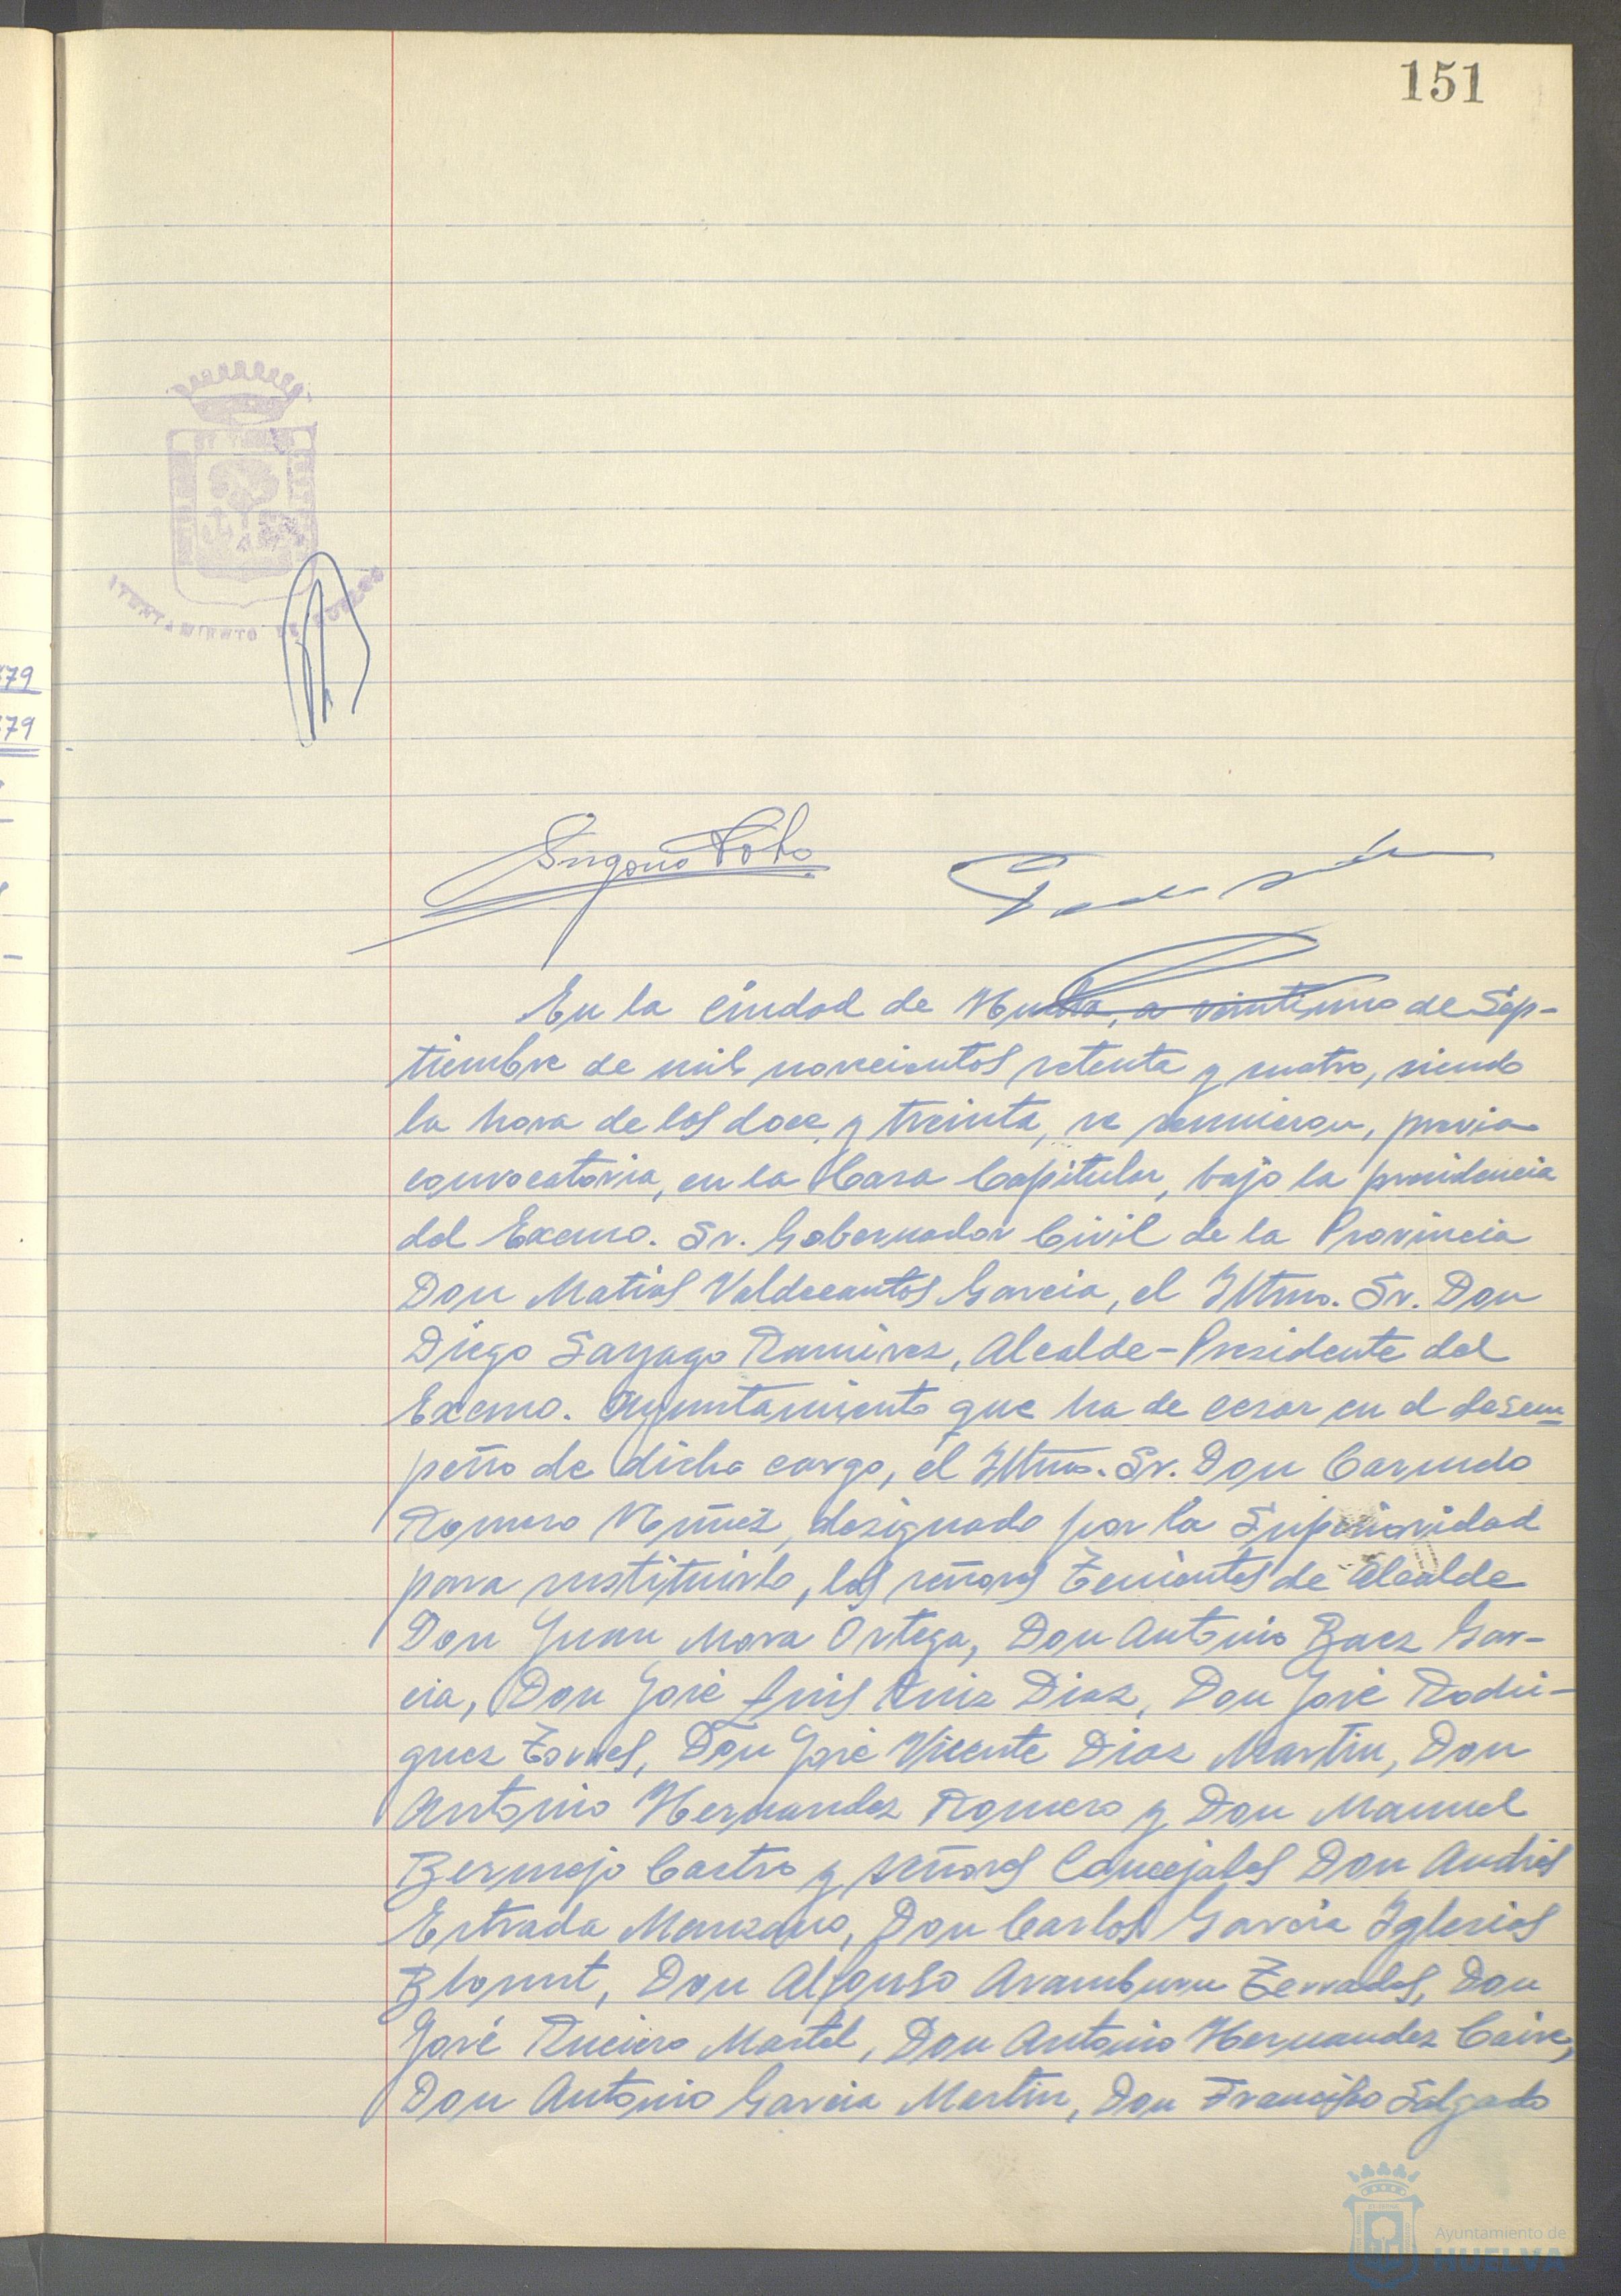 151
79
79
AYUNTAMIENTO DE HUELVA
En la ciudad de Huelva, a veintiuno de Sep-
tiembre de mil novecientos setenta y cuatro, siendo
la hora de las doce y treinta, se reunieron, previa
convocatoria, en la Casa Capitular, bajo la presidencia
del Excmo. Sr. Gobernador Civil de la Provincia
Don Matias Valdecantos Garcia, el Iltmo. Sr. Don
Diego Sayago Ramirez, Alcalde-Presidente del
Excmo. Ayuntamiento que ha de cesar en el desem-
peño de dicho cargo, el Iltmo. Sr. Don Carmelo
Romero Nuñez, designado por la Superioridad
para sustituirlo, los señores Tenientes de Alcalde
Don Juan Mora Ortega, Don Antonio Baez Gar-
cia, Don José Luis Ruiz Diaz, Don José Rodri-
guez Torres, Don José Vicente Diaz Martin, Don
Antonio Hernandez Romero y Don Manuel
Bermejo Castro y señores Concejales Don Andrés
Estrada Manzano, Don Carlos Garcia Iglesias
Blount, Don Alfonso Aramburu Terrades, Don
José Martel, Don Antonio Hernandez
Don Antonio Garcia Martin, Don Francisco Salgado
Ayuntamiento de
HUELVA